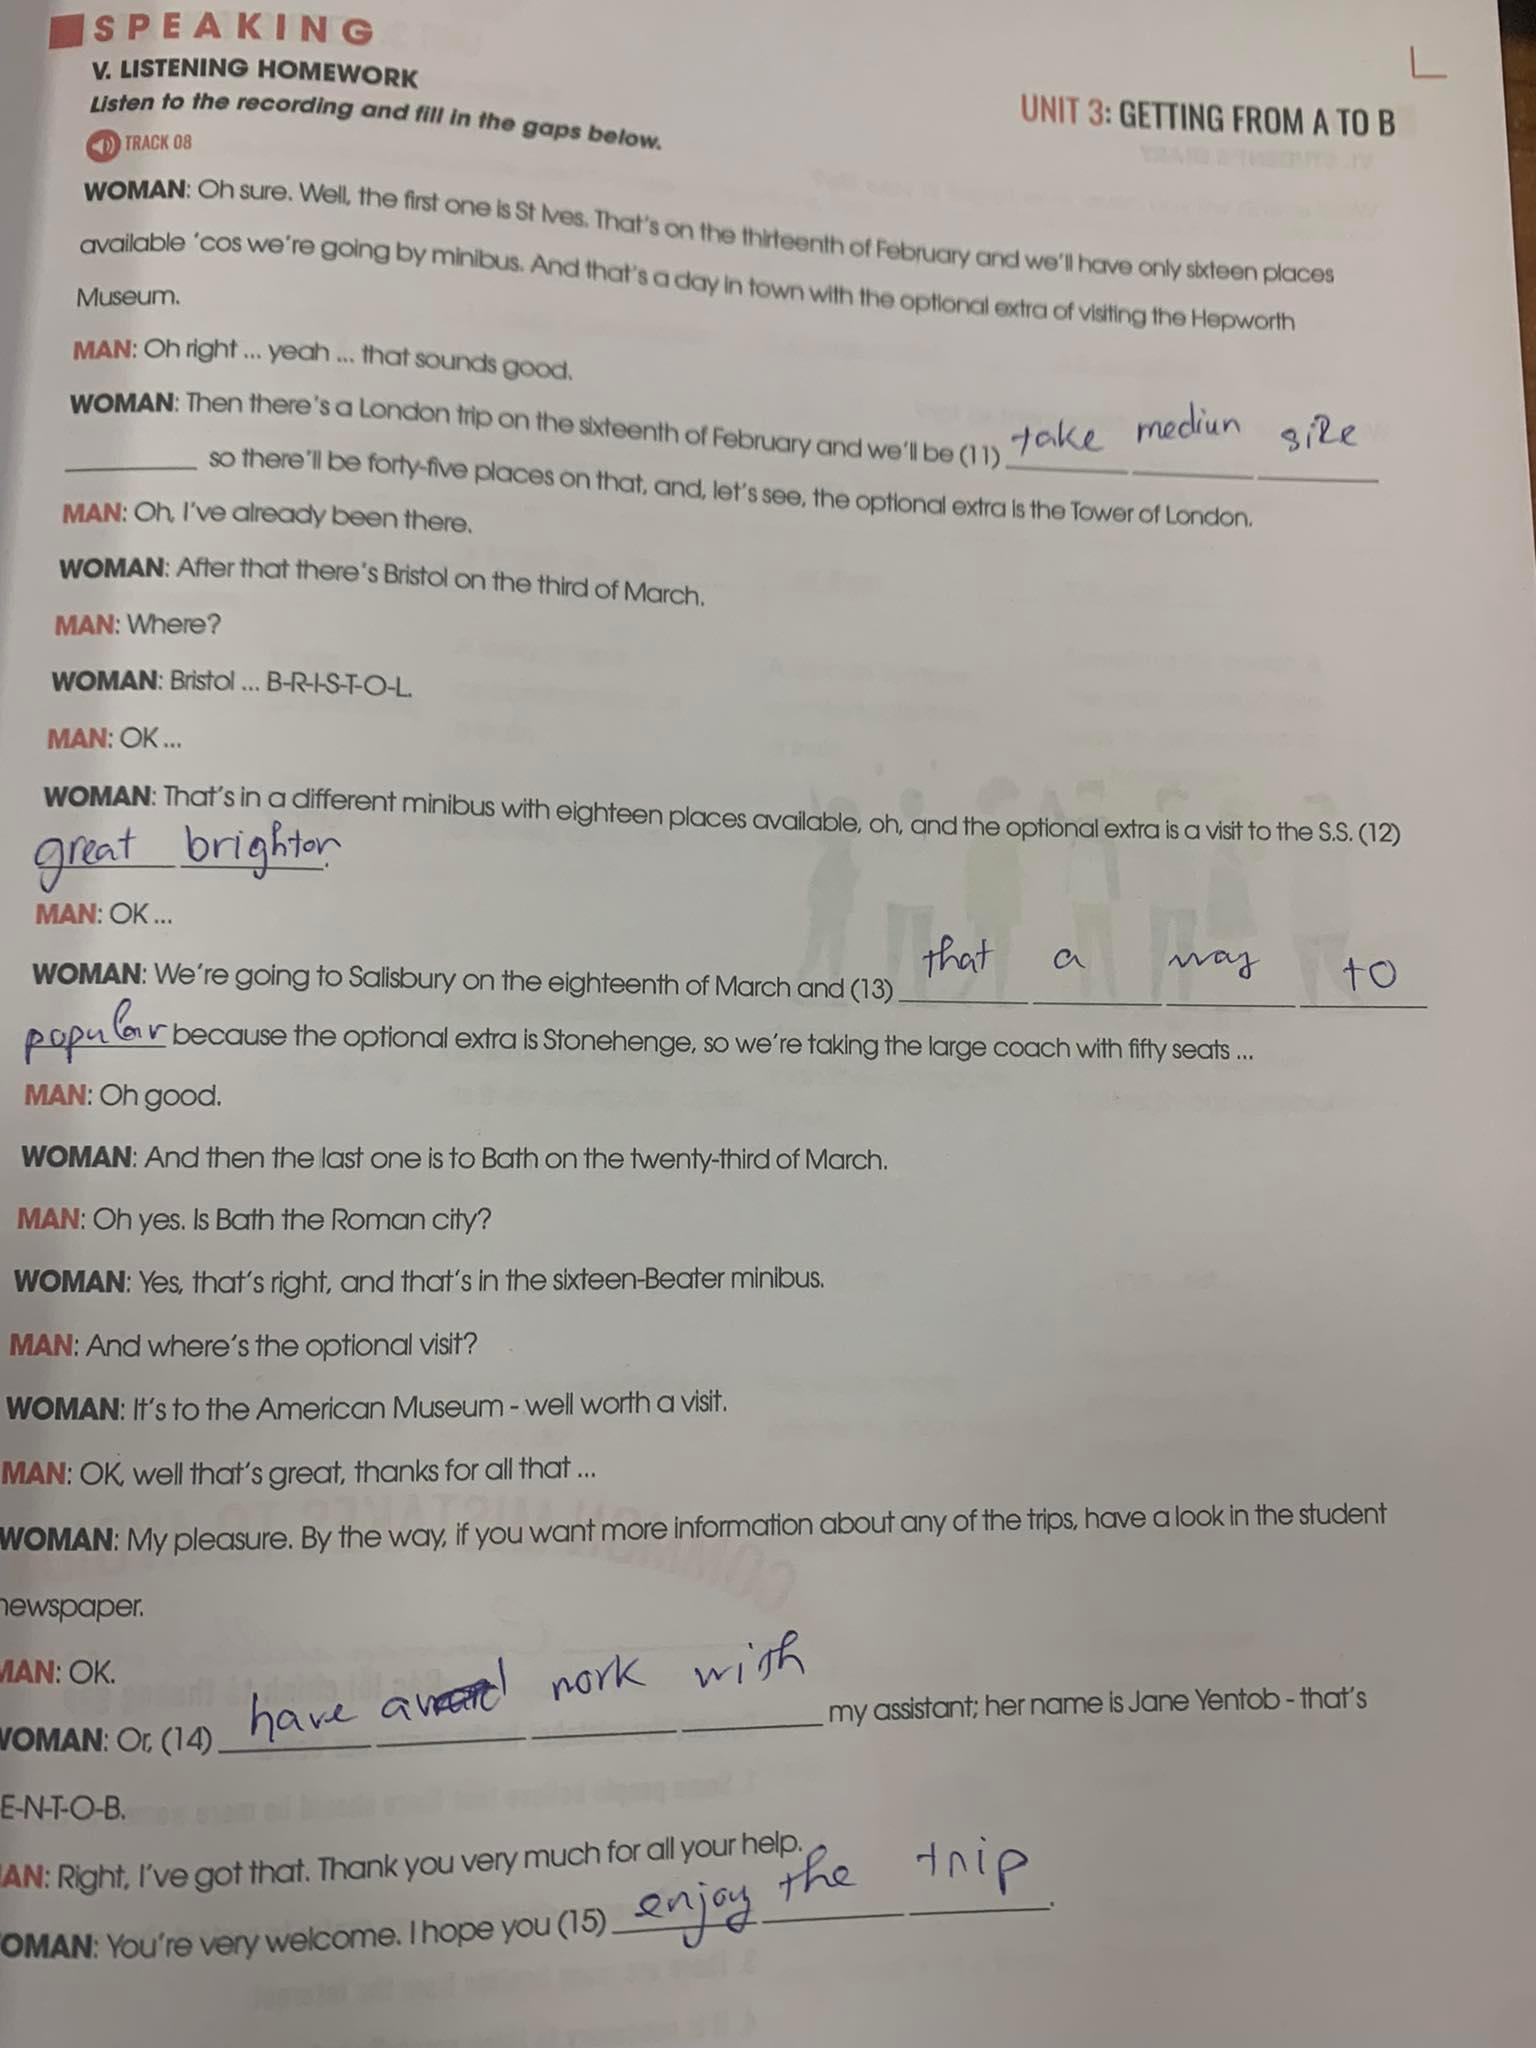 SPEAKING
V. LISTENING HOMEWORK
Listen to the recording and fill in the gaps below.
UNIT 3: GETTING FROM A TO B
TRACK 08
WOMAN: Oh sure. Well, the first one is St Ives. That's on the thirteenth of February and we'll have only sixteen places
available 'cos we're going by minibus. And that's a day in town with the optional extra of visiting the Hepworth
Museum.
MAN: Oh right ... yeah ... that sounds good.
WOMAN: Then there's a London trip on the sixteenth of February and we'll be (11) take mediun size
so there'll be forty-five places on that, and, let's see, the optional extra is the Tower of London.
MAN: Oh, I've already been there.
WOMAN: After that there's Bristol on the third of March.
MAN: Where?
WOMAN: Bristol ... B-R-I-S-T-O-L.
MAN: OK ...
WOMAN: That's in a different minibus with eighteen places available, oh, and the optional extra is a visit to the S.S. (12)
great brighton.
MAN: OK ...
WOMAN: We're going to Salisbury on the eighteenth of March and (13) that a way to
popular because the optional extra is Stonehenge, so we're taking the large coach with fifty seats ...
MAN: Oh good.
WOMAN: And then the last one is to Bath on the twenty-third of March.
MAN: Oh yes. Is Bath the Roman city?
WOMAN: Yes, that's right, and that's in the sixteen-Beater minibus.
MAN: And where's the optional visit?
WOMAN: It's to the American Museum - well worth a visit.
MAN: OK, well that's great, thanks for all that ...
WOMAN: My pleasure. By the way, if you want more information about any of the trips, have a look in the student
newspaper.
MAN: OK.
WOMAN: Or, (14) have a work with my assistant; her name is Jane Yentob - that's
E-N-T-O-B.
AN: Right, I've got that. Thank you very much for all your help.
OMAN: You're very welcome. I hope you (15) enjoy the trip.